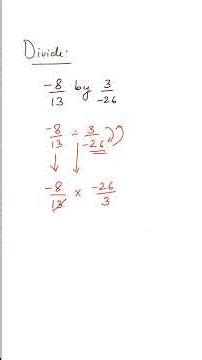 Divide:
-8/13 by 3/-26
-8/13 ÷ 3/-26
-8/13 × -26/3